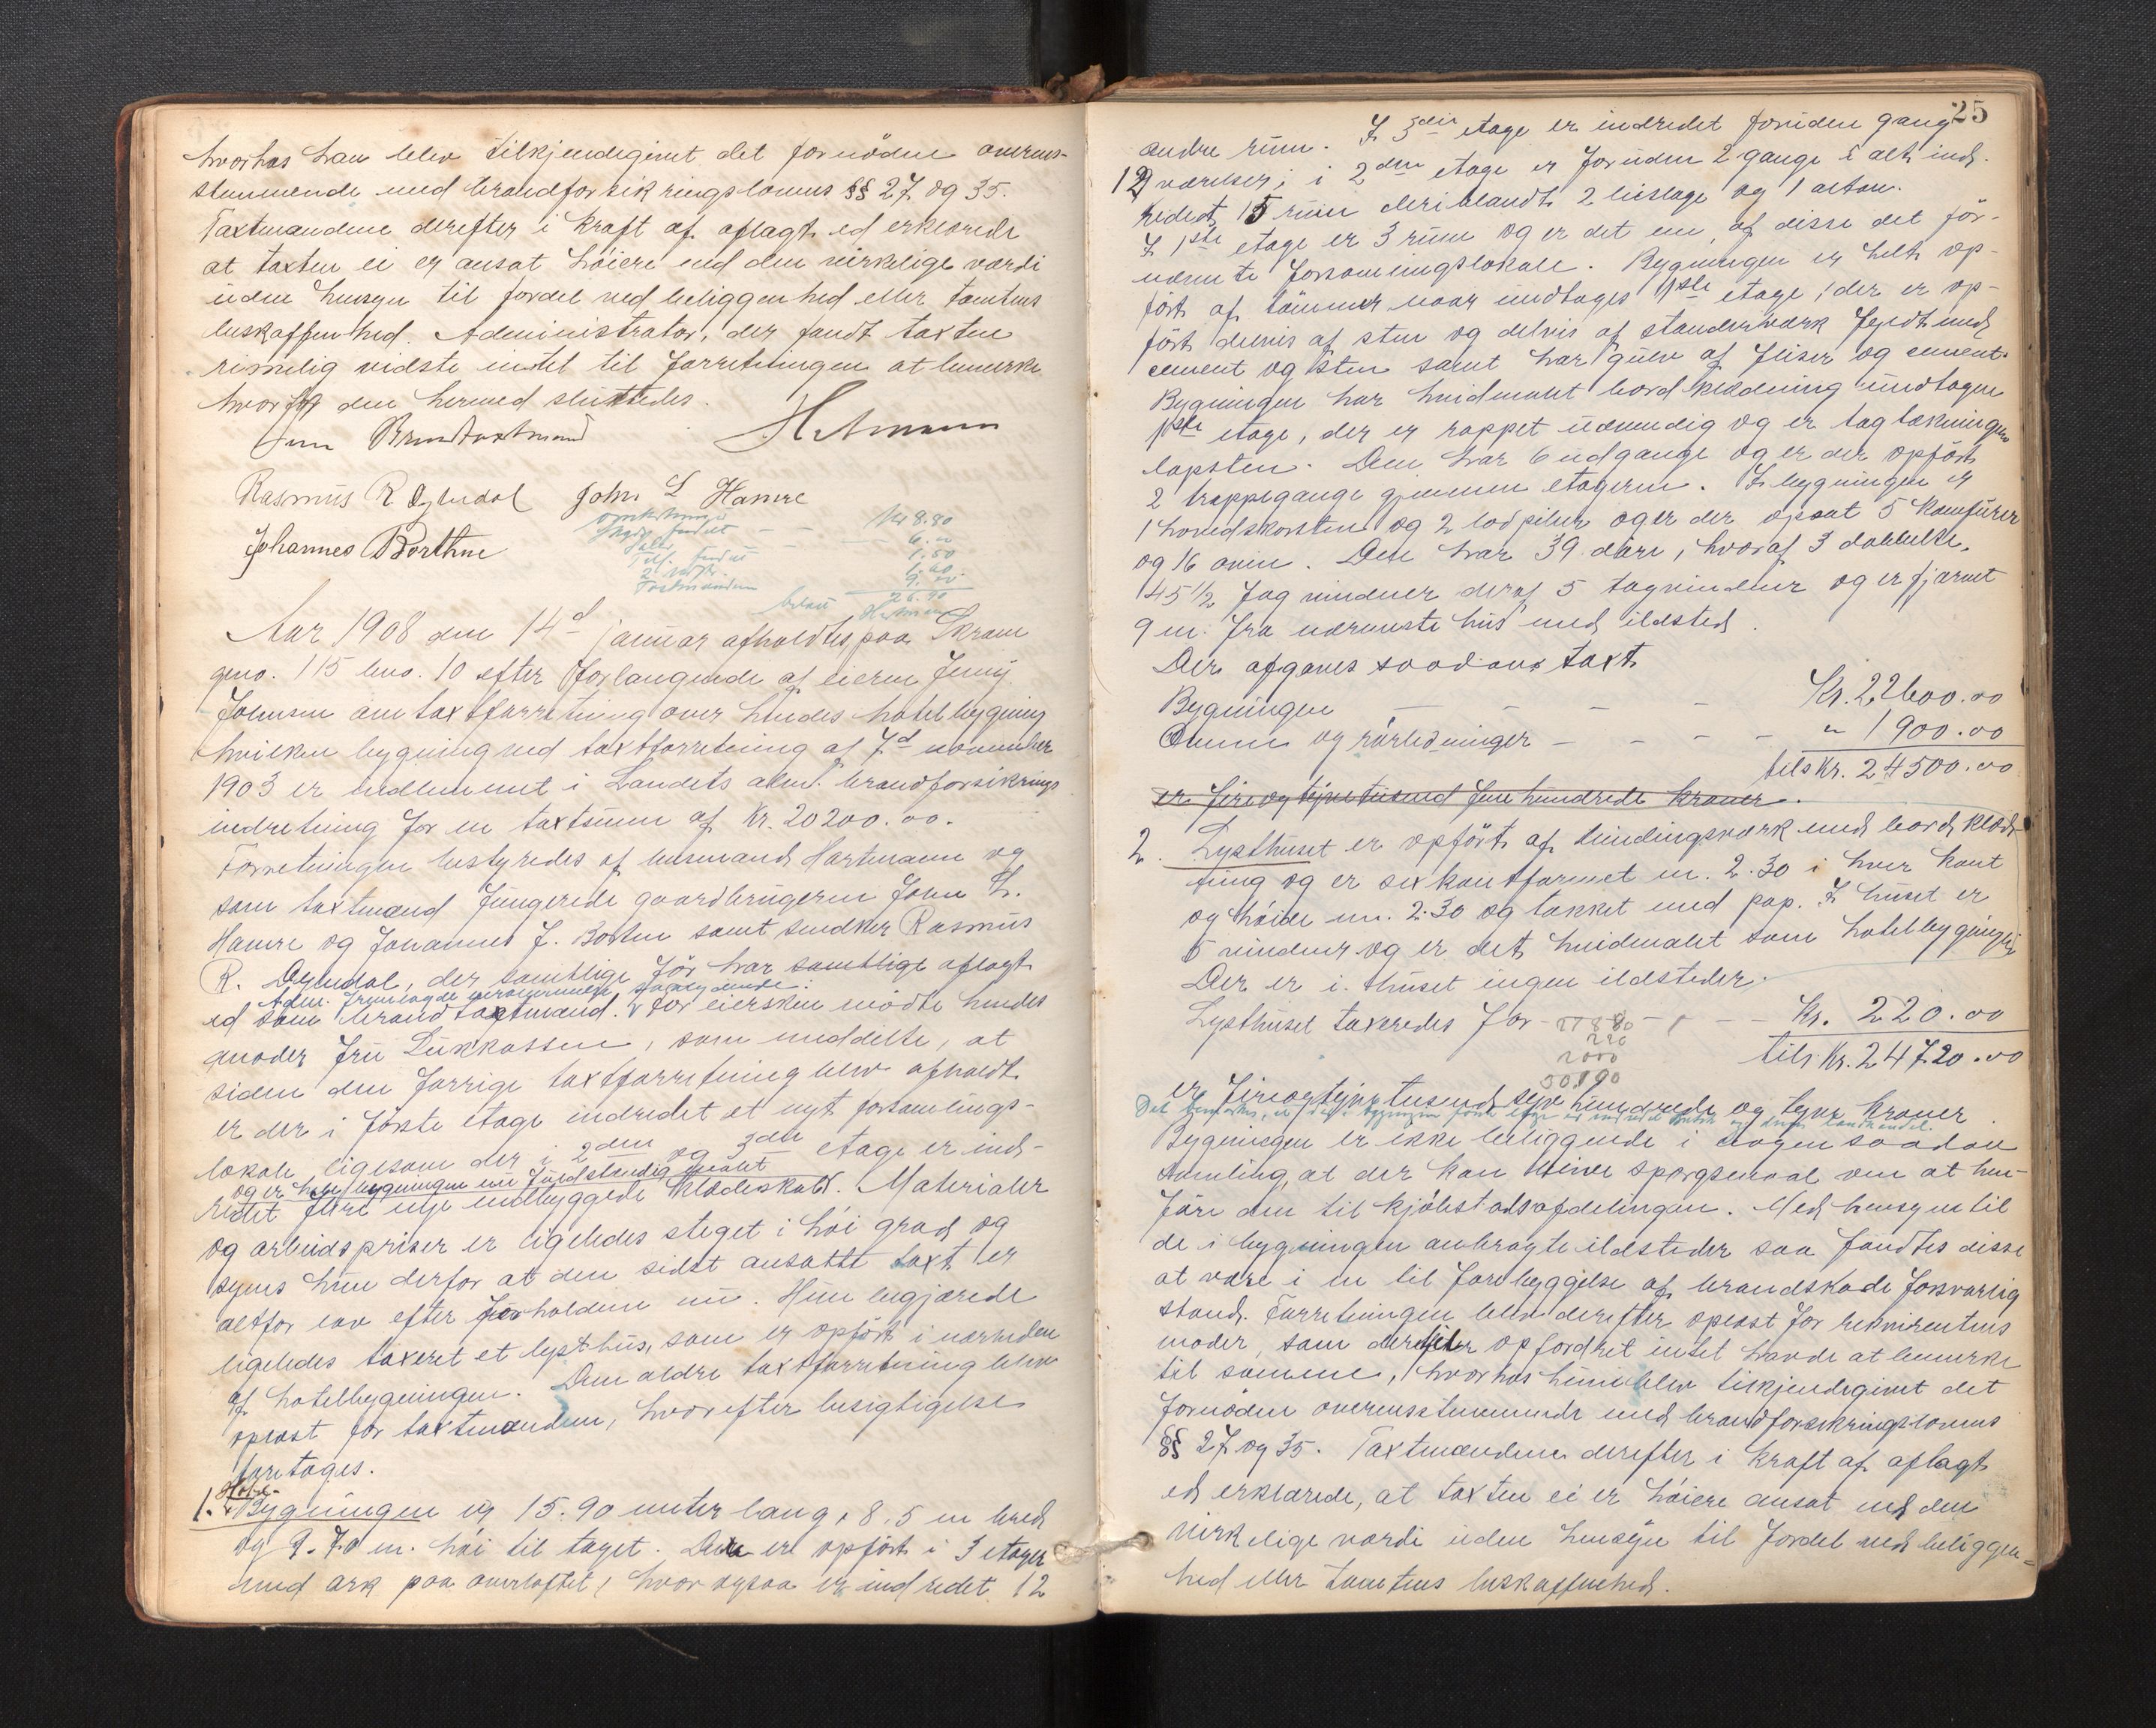 hvorhos han blev tilkjendegivet det fornödne overens-
stemmende med brandforsikringslovens §§ 27 og 35.
Taxtmændene derefter i kraft af aflagt ed erklærede
at taxten ei er ansat höiere end den virkelige værdi
uden hensyn til fordel ved beliggenhed eller tomtens
beskaffenhed. Administrator, der fandt taxten
rimelig vidste intet til forretningen at bemærke
hvorpaa den hermed sluttedes.
Som Brandtaxtmænd
Rasmus R Öglendal John L Hamre
Johannes Borthne
Kr 8.80
6.00
1.50
9.00
Taxtmænden
26.90
Aar 1908 den 14d januar afholdtes paa Skram
gno. 115 bno. 10 efter forlangende af eieren Jenny
Johnsen en taxtforretning over hendes hotelbygning
hvilken bygning ved taxtforretning af 7d november
1903 er indlemmet i Landets alm. brandforsikrings
indretning for en taxtsum af Kr. 20200.00.
Forretningen bestyredes af lensmand Hartmann og
som taxtmænd fungerede gaardbrugerne John L.
Hamre og Johannes J. Borten samt snedker Rasmus
R. Öglendal, der samtlige för har samtlige aflagt
Adm. fremlagde saalydende:
ed som brandtaxtmænd. For eiersken mödte hendes
moder fru Lukkassen, som meddelte, at
siden den forrige taxtforretning blev afholdt
er der i förste etage indredet et nyt forsamlings-
lokale ligesom der i 2den og 3die etage er ind-
og er hele bygningen nu fuldstændig malet
redet flere nye indbyggede klædeskabe. Materialer
og arbeidspriser er ligeledes steget i höi grad og
synes hun derfor at den sidst ansatte taxt er
altfor lav efter forholdene nu. Hun begjærede
ligeledes taxeret et lysthus, som er opfört i nærheden
af hotelbygningen. Den ældre taxtforretning blev
oplæst for taxtmændene, hvorefter besigtigelse
foretoges.
Hotel-
1. Bygningen er 15.90 meter lang, 8.5 m bred
og 9.70 m. höi til taget. Den er opfört i 3 etager
med ark paa overloftet, hvor ogsaa er indredet 12
25
andre rum. I 3die etage er indredet foruden gang
12 værelser; i 2den etage er foruden 2 gange i alt ind-
redet 15 rum deriblandt 2 bislage og 1 altan.
I 1ste etage er 3 rum og er det ene af disse det för-
nævnte forsamlingslokale. Bygningen er helt op-
fört af tömmer naar undtages 1ste etage, der er op-
fört delvis af sten og delvis af standerværk fyldt med
cement og sten samt har gulv af fliser og cement.
Bygningen har hvidmalet bordklædning undtagen
1ste etage, der er rappet udvendig og er tagtækningen
tagsten. Den har 6 udgange og er der opfört
2 trappegange gjennem etagerne. I bygningen er
1 hovedskorsten og 2 lodpiber og er der opsat 5 komfurer
og 16 ovne. Den har 39 döre, hvoraf 3 dobbelte,
45 1/2 fag vinduer deraf 5 tagvinduer og er fjærnet
9 m. fra nærmeste hus med ildsted.
Der afgaves saadan taxt
Bygningen — — — — Kr. 22600.00
Ovne og rörledninger — — — — " 1900.00
tils Kr. 24500.00
er fireogtyvetusend femhundrede kroner.
2. Lysthuset er opfört af bindingsværk med bordklæd-
ning og er sexkantformet m. 2.30 i hver kant
og höide m. 2.30 og tækket med pap. I huset er
5 vinduer og er det hvidmalet som hotelbygningen
Der er i huset ingen ildsteder.
Lysthuset taxeredes for — — — Kr. 220.00
220
2000
tils. Kr. 24720.00
er fireogtyvetusend syvhundrede og tyve kroner.
Bygningen er ikke beliggende i nogen saadan
samling, at der kan blive spörgsmaal om at hen-
före den til kjöbstadsafdelingen. Med hensyn til
de i bygningen anbragte ildsteder saa fandtes disse
at være i en til forebyggelse af brandskade forsvarlig
stand. Forretningen blev derefter oplæst for rekvirentens
moder, som derefter opfordret intet havde at bemærke
til samme, hvorhos hun blev tilkjendegivet det
fornödne overensstemmende med brandforsikringslovens
§§ 27 og 35. Taxtmændene derefter i kraft af aflagt
ed erklærede, at taxten ei er höiere ansat end den
virkelige værdi uden hensyn til fordel ved beliggen-
hed eller tomtens beskaffenhed.